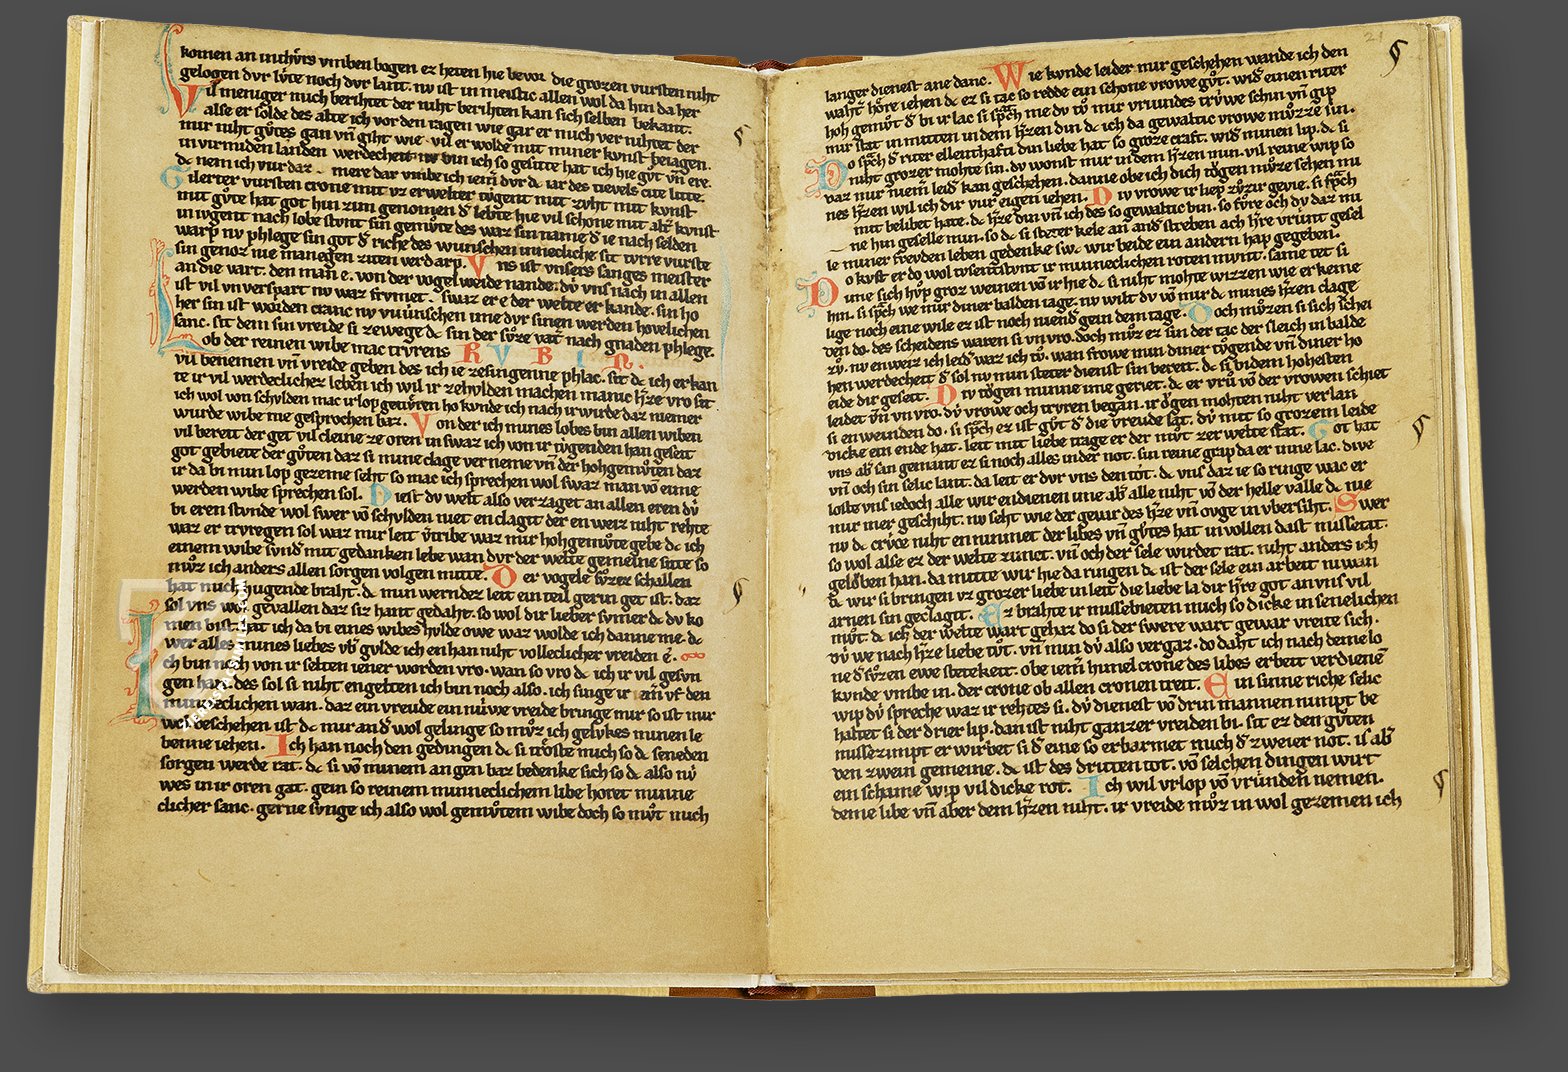 komen an mithyrs vmben bogen ez heten hie bevor die grozen vursten niht
gelogen dvr lv̂te noch dvr lant. nv ist in meistic allen wol da hin da her
Vil meniger mich berihtet der niht berihten kan sich selben bekant.
alse er solde des alte ich vor den tagen wie gar er mich ver rihtet der
mir niht gůtes gan vn̄ giht wie vil er wolde mit miner kvnst beiagen.
in vrmiden landen werdecheit nv bin ich so gesitte hat ich hie gůt vn̄ ere.
dc nem ich vur daz mere dar vmbe ich iem̄ dvr dc iar des tievels
Gilerter vursten crone mit vz erwelter tvgent mit zvht mit kvnst
mit gůte hat got hin zim genomen d̄ lebte hie vil schone mit
in ivgent nach lobe stvnt sin gemv̂te des waz sin name d̄ ie nach selden
warp nv phlege sin got d̄ riche des wunschen inneclíche sit tvrre vurste
sin genoz nie manegen ziten verdarp. Vns ist vnsers sanges meister
an die vart. den man e. von der vogel weide nande. dv̂ vns nach in allen
ist vil vnverspart nv waz frvmet. swaz er e der welte er kande. sin ho
her sin ist worden cranc nv wúnschen ime dvr sinen werden hovelichen
sanc. sit dem sin vreide si ze wege dc sin der sůze vat̄ nach gnaden phlege.
Lob der reinen wibe mac tryrens RVBIN.
vil benemen vn̄ vreide geben des ich ie ze singenne phlac. sit dc ich er kan
te ir vil werdeclichez leben ich wil ir ze hvlden machen manic h̄ze vro sit
ich wol von schvlden mac ir lop getv̂ren ho kvnde ich nach ir wirde daz niemer
wurde wibe me gesprochen baz. Von der ich mines lobes bin allen wiben
vil bereit der get vil cleine ze oren in swaz ich von ir tvgenden han geseit
got gebiete der gůten daz si mine clage ver neme vn̄ der hohgemv̂ten daz
ir da bi min lop gezeme seht so mac ich sprechen wol swaz man vō eime
werden wibe sprechen sol. Diest dv welt also verzaget an allen eren dv̂
bi eren stvnde wol swer vō schvlden niet en clagit der en weiz niht rehte
waz er tryregen sol waz mir leit v̄tribe waz mir hohgemůte gebe dc ich
einem wibe sv̂nd̄ mit gedanken lebe wan dvr der welte gemeine sitte so
mv̂z ich anders allen sorgen volgen mitte. Der vogele sv̂zez schallen
hat mich hugende braht. dc mun wernder leit ein teil gerin get ist. daz
sol vns wol gevallen daz siz hant gedaht. so wol dir lieber svmer dc dv ko
men bist. hat ich da bi eines wibes hvlde owe waz wolde ich danne me. dc
wer alles mines liebes vb̄ gvlde ich en han niht volleclicher vreiden e.
Ich bin noch von ir selten iener worden vro. wan so vro dc ich ir vil gesvn
gen han. des sol si niht engelten ich bin noch also. ich singe ir iem̄ vf den
minneclichen wan. daz ein vreude ein nůwe vreide bringe mir so ist mir
wol geschehen ist dc mir and̄ wol gelinge so mv̂z ich gelvkes minen le
benne iehen. Ich han noch den gedingen dc si trôste mich so dc seneden
sorgen werde rat. dc si vō minem an gen baz bedenke sich so dc also nv̂
wes in ir oren gat. gein so reinem minneclichem libe horet minne
clicher sanc. gerne sv̂nge ich also wol gemv̂tem wibe doch so mv̂t mich
21
langer dienest ane danc. Wie kvnde leider mir geschehen wande ich den
waht̄ hôre iehen dc ez si tac so redde ein schone vrowe gůt. wid̄ einen riter
hoh gemůt d̄ bi ir lac si sp̄ch me dv tů mir vriundes trywe schin vn̄ gip
mir stat in mitten in dem h̄zen din dc ich da gewaltic vrowe mv̂zze sin.
Do sp̄ch d̄ riter ellenthaft. din liebe hat so groze craft. wid̄ minen lip. dc si
niht grozer mohte sin. dv wonst mir in dem h̄zen min. vil reine wip so
daz mir niem̄ leid̄ kan geschehen. danne obe ich dich tôgen mv̂ze sehen mi
nes h̄zen wil ich dir vur eigen iehen. Div vrowe ir liep zv̂zir gevie. si sp̄ch
mit belibet hate. dc h̄ze din vn̄ ich des so gewaltic bin. so fv̂re och dv daz mi
ne hin geselle min. so dc si stetter kele an and̄ streben ach h̄ze vrúnt gesel
le miner frevden leben gedenke sw̄ wir beide ein andern hap gegeben.
Do kvst er do wol tvsentstvnt ir minneclichen roten mvnt. same tet si
ime sich hv̂p groz weinen vō ir hie dc si niht mohte wizzen wie er keme
hin. si sp̄ch we mir diner balden iage. nv wilt dv vō mir dc mines h̄zen clage
lige noch eine wile ez ist noch niend̄ gein dem tage. Doch mv̂zen si sich scheı
den do. des scheidens waren si vn vro. doch mv̂z ez sin der tac der sleich in balde
zů. nv en weiz ich led̄ waz ich tů. wan frowe min diner tvgende vn̄ diner ho
hen werdecheit d̄ sol nv min steter dienst sin bereit. dc si bi dem hohesten
eide dir geseit. Div tôgen minne ime geriet. dc er vrů vō der vrowen schiet
leidet vn̄ vn vro. dv̂ vrowe och tryren began. ir ôgen mohten niht verlan
si en weinden do. si sp̄ch ez ist gůt d̄ die vreude sat. dv̂ mit so grozem leide
dicke ein ende hat. leit mit liebe trage er der mv̂t zer welte stat. Got hat
vns ab̄ san gemant ez si noch alles in der not. sin reine grap da er inne lac. dive
vn̄ och sin selic lant. da leit er dvr vns den tôt. dc vns daz ie so ringe wac er
loste vns iedoch alle wir en dienen ime ab̄ alle niht vō der helle valle dc nie
mir mer geschiht. nv seht wie der gewir des h̄ze vn̄ ovge in vber siht. Swer
nv dc crv̂ce niht en nimmet der libes vn̄ gůtes hat in vollen dast missetat.
so wol alse ez der welte zimet. vn̄ och der sele wirdet rat. niht anders ich
gelôben han. da mitte wir hie da ringen dc ist der sele ein arbeit nv wan
dc wir si bringen vz grozer liebe in leit die liebe la dir h̄re got an vns vil
armen sin geclagit. Ez brahte ir missebieten mich so dicke in senelichen
mv̂t. dc ich der welte wart gehaz do si der swere wart gewar vreite sich.
dv̂ we nach h̄ze liebe tůt. vn̄ min dv̂ also vergaz. do daht ich nach deme lo
ne d̄ sv̂zen ewe stetekeit. obe iem̄ himel crone des libes erbeit verdiene
kvnde vmbe in. der crone ob allen cronen treit. Ein sinne riche selic
wip dv̂ spreche waz ir rehtes si. dv̂ dienest vō drin mannen nimpt be
haltet si der drier lip. dan ist niht ganzer vreiden bi. sit ez den gůten
missezimpt er wirbet si d̄ eine so erbarmet mich d̄ zweier not. is ab̄
den zwein gemeine. dc ist des dritten tot. vō selchen dingen wirt
ein schame wip vil dicke rot. Ich wil vrlop vō vrúnden nemen.
deme libe vn̄ aber dem h̄zen niht. ir vreide mv̂z in wol gezemen ich